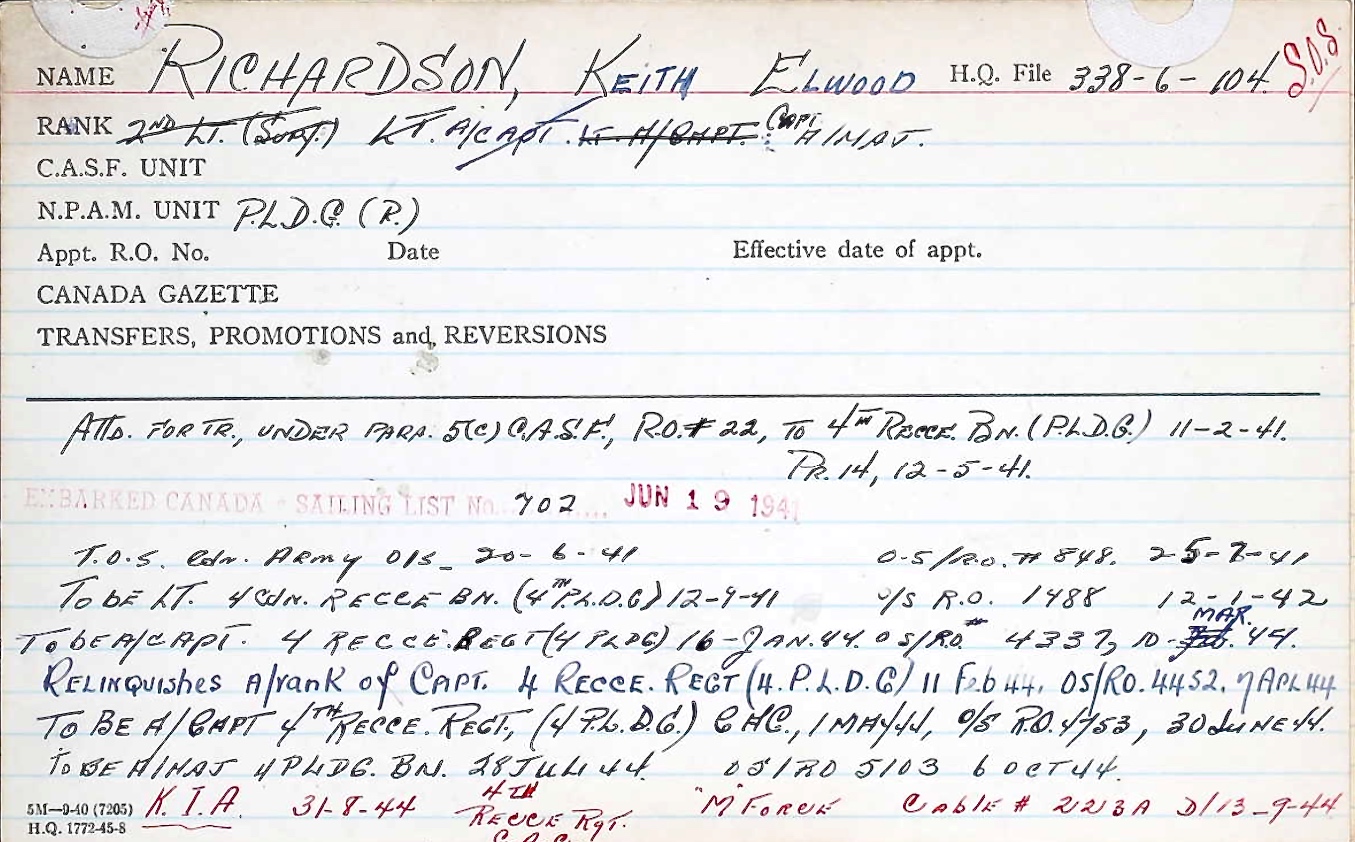 NAME RICHARDSON, KEITH ELWOOD H.Q. File 338-6-104. S.O.S.
RANK 2ND LT. (SUPY.) LT. A/CAPT. LT. A/CAPT. CAPT. A/MAJ.
C.A.S.F. UNIT
N.P.A.M. UNIT P.L.D.G. (R.)
Appt. R.O. No. Date Effective date of appt.
CANADA GAZETTE
TRANSFERS, PROMOTIONS and, REVERSIONS
ATTD. FOR TR., UNDER PARA. 5(C) C.A.S.F., R.O. # 22, TO 4TH RECCE. BN. (P.L.D.G.) 11-2-41.
PR. 14, 12-5-41.
EMBARKED CANADA - SAILING LIST No. 702 JUN 19 1941
T.O.S. Cdn. Army O/S_ 20-6-41 O.S/R.O. # 848. 25-7-41
TO BE LT. 4 CDN. RECCE BN. (4TH P.L.D.G) 12-9-41 O/S R.O. 1488 12-1-42
TO BE A/CAPT. 4 RECCE. REGT (4 PLDG) 16-JAN. 44. OS/RO # 4337, 10-Feb. MAR. 44.
RELINQUISHES A/rank of CAPT. 4 RECCE. REGT (4. P.L.D.G) 11 Feb 44. OS/RO. 4452. 7 APL 44
TO BE A/CAPT 4TH RECCE. REGT., (4 P.L.D.G.) CAC., 1 MAY 44, O/S R.O. 4753, 30 JUNE 44.
TO BE A/MAJ 4 PLDG. BN. 28 JUL 44. OS/RO 5103 6 OCT 44.
5M—9-40 (7205) K.I.A. 31-8-44 4TH RECCE RGT. "M" FORCE CABLE # 223A D/13-9-44
H.Q. 1772-45-8 C.A.C.